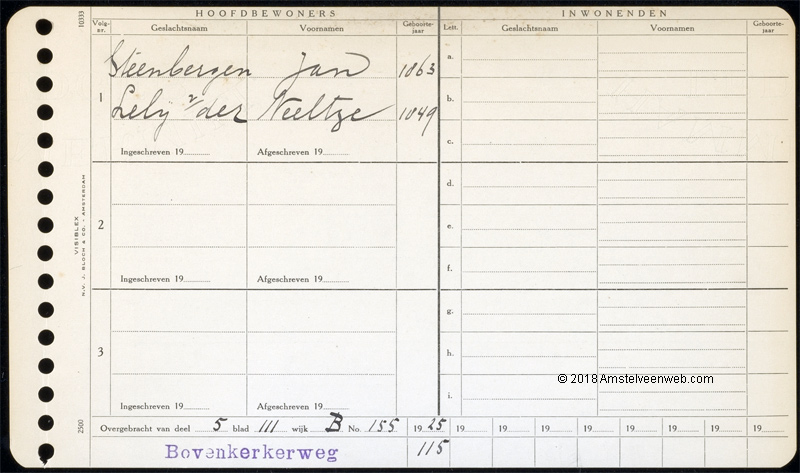 HOOFDBEWONERS INWONENDEN
Volg-nr. Geslachtsnaam Voornamen Geboorte-jaar Lett. Geslachtsnaam Voornamen Geboorte-jaar
10333
1
Steenbergen Jan 1863
Lely v/der Neeltze 1849
Ingeschreven 19 Afgeschreven 19
2
Ingeschreven 19 Afgeschreven 19
3
Ingeschreven 19 Afgeschreven 19
a.
b.
c.
d.
e.
f.
g.
h.
i.
© 2018 Amstelveenweb.com
VISIBLEX
N.V. J. BLOCH & CO. - AMSTERDAM
2500
Overgebracht van deel 5 blad 111 wijk B No. 155 1925 19 19 19 19 19 19 19 19
Bovenkerkerweg 115